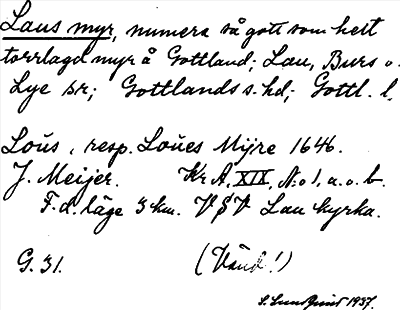 Laus myr, numera så gott som helt
torrlagd myr å Gottland; Lau, Burs o.
Lye sr; Gottlands s. hd; Gottl. l.
Loûs, resp. Loûes Mÿre 1646.
J. Meijer. Kr A, XIX, N:o 1, a. o. b.
F. d. läge 3 km. V § V Lau kyrka.
G. 31. (Vänd!)
S. Sundquist 1937.